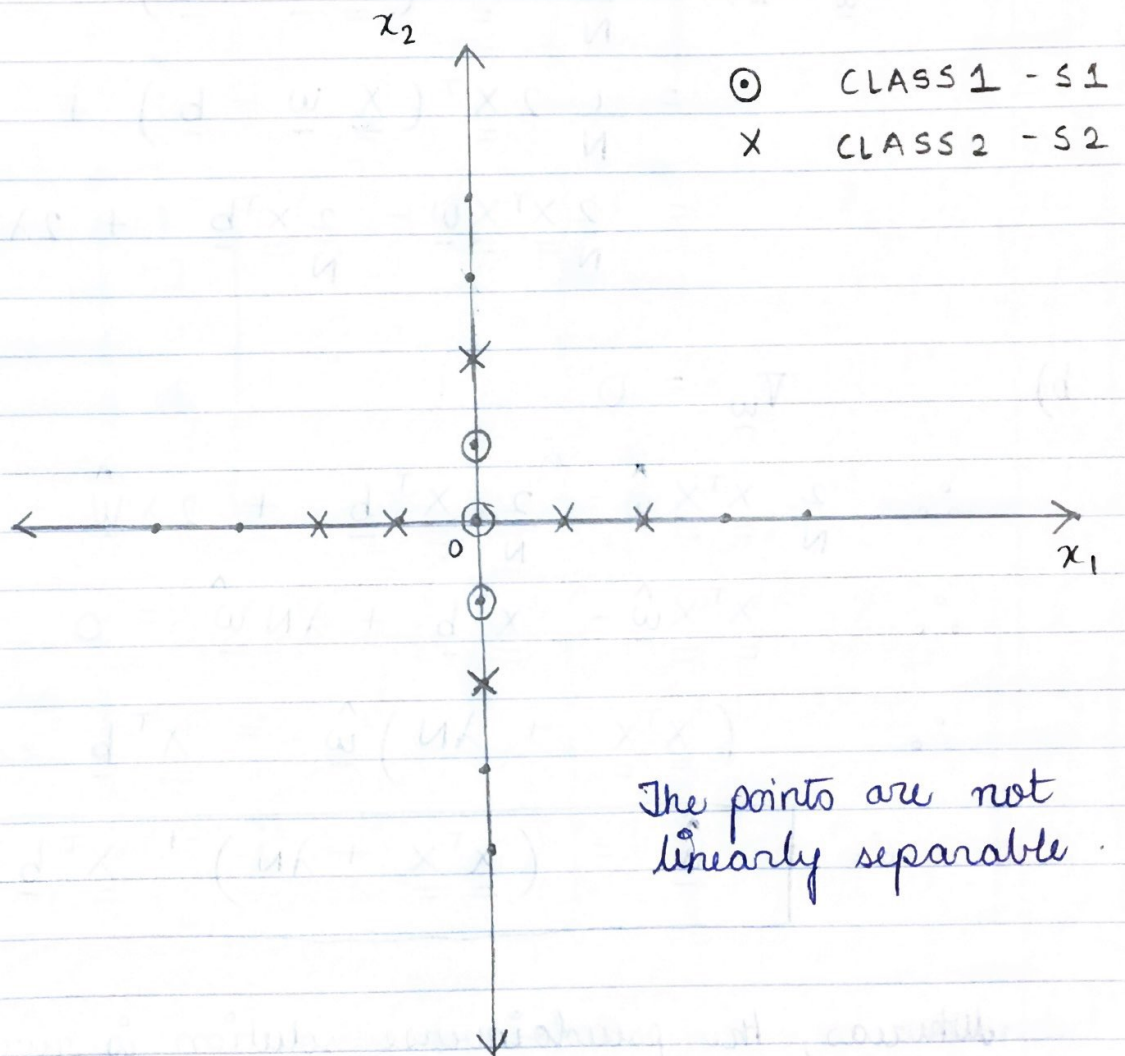 x₂
CLASS 1 - S1
CLASS 2 - S2
0
x₁
The points are not
linearly separable.